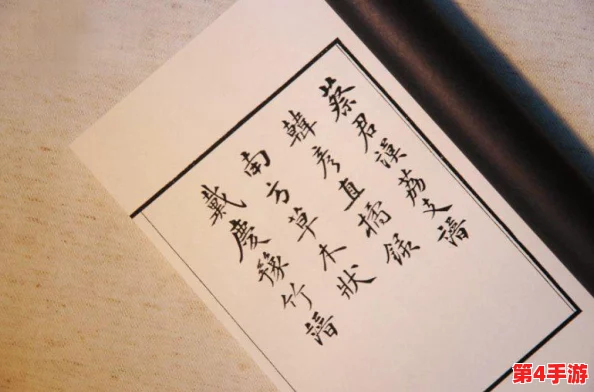 蔡君謨荔支譜
韓彥直橘錄
南方草木狀
戴慶豫竹譜
第4手游